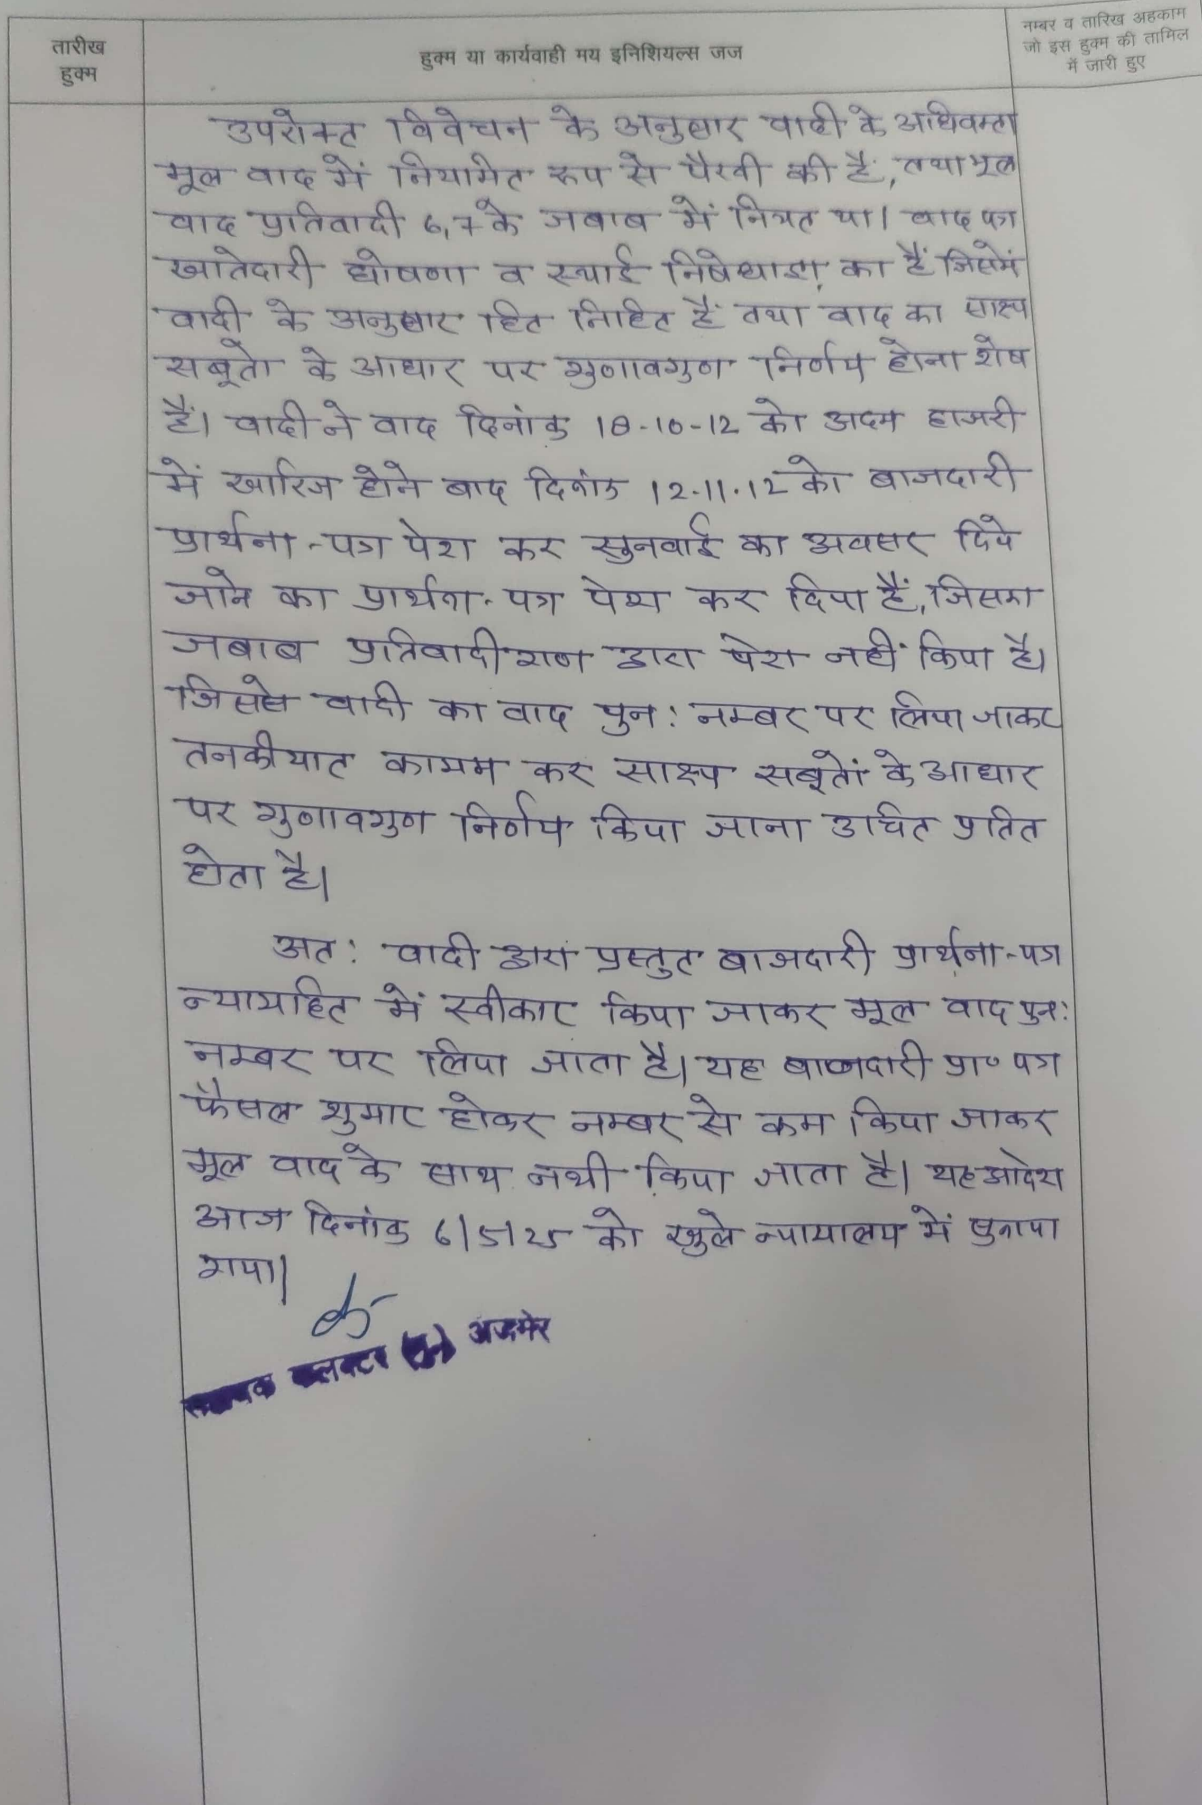 तारीख
हुक्म
हुक्म या कार्यवाही मय इनिशियल्स जज
नम्बर व तारिख अहकाम
जो इस हुक्म की तामिल
में जारी हुए
उपरोक्त विवेचन के अनुसार वादी के अधिवक्ता
मूल वाद में नियमित रूप से पैरवी की है, तथा मूल
वाद प्रतिवादी 6,7 के जबाब में नियत था। वाद पत्र
खातेदारी घोषणा व स्थाई निषेधाज्ञा का हैं जिसमें
वादी के अनुसार हित निहित हैं तथा वाद का साक्ष्य
सबूतो के आधार पर गुणावगुण निर्णय होना शेष
हैं। वादी ने वाद दिनांक 18-10-12 को अदम हाजरी
में खारिज होने बाद दिनांक 12.11.12 को बाजदारी
प्रार्थना-पत्र पेश कर सुनवाई का अवसर दिये
जाने का प्रार्थना-पत्र पेश कर दिया हैं, जिसका
जबाब प्रतिवादीगण द्वारा पेश नहीं किया है।
जिससे वादी का वाद पुन: नम्बर पर लिया जाकर
तनकीयात कायम कर साक्ष्य सबूतों के आधार
पर गुणावगुण निर्णय किया जाना उचित प्रतित
होता है।
अत: वादी द्वारा प्रस्तुत बाजदारी प्रार्थना-पत्र
न्यायहित में स्वीकार किया जाकर मूल वाद पुन:
नम्बर पर लिया जाता है। यह बाजदारी प्रा० पत्र
फैसल शुमार होकर नम्बर से कम किया जाकर
मूल वाद के साथ नथी किया जाता है। यह आदेश
आज दिनांक 6/5/25 को खुले न्यायालय में सुनाया
गया।
कलक्टर अजमेर